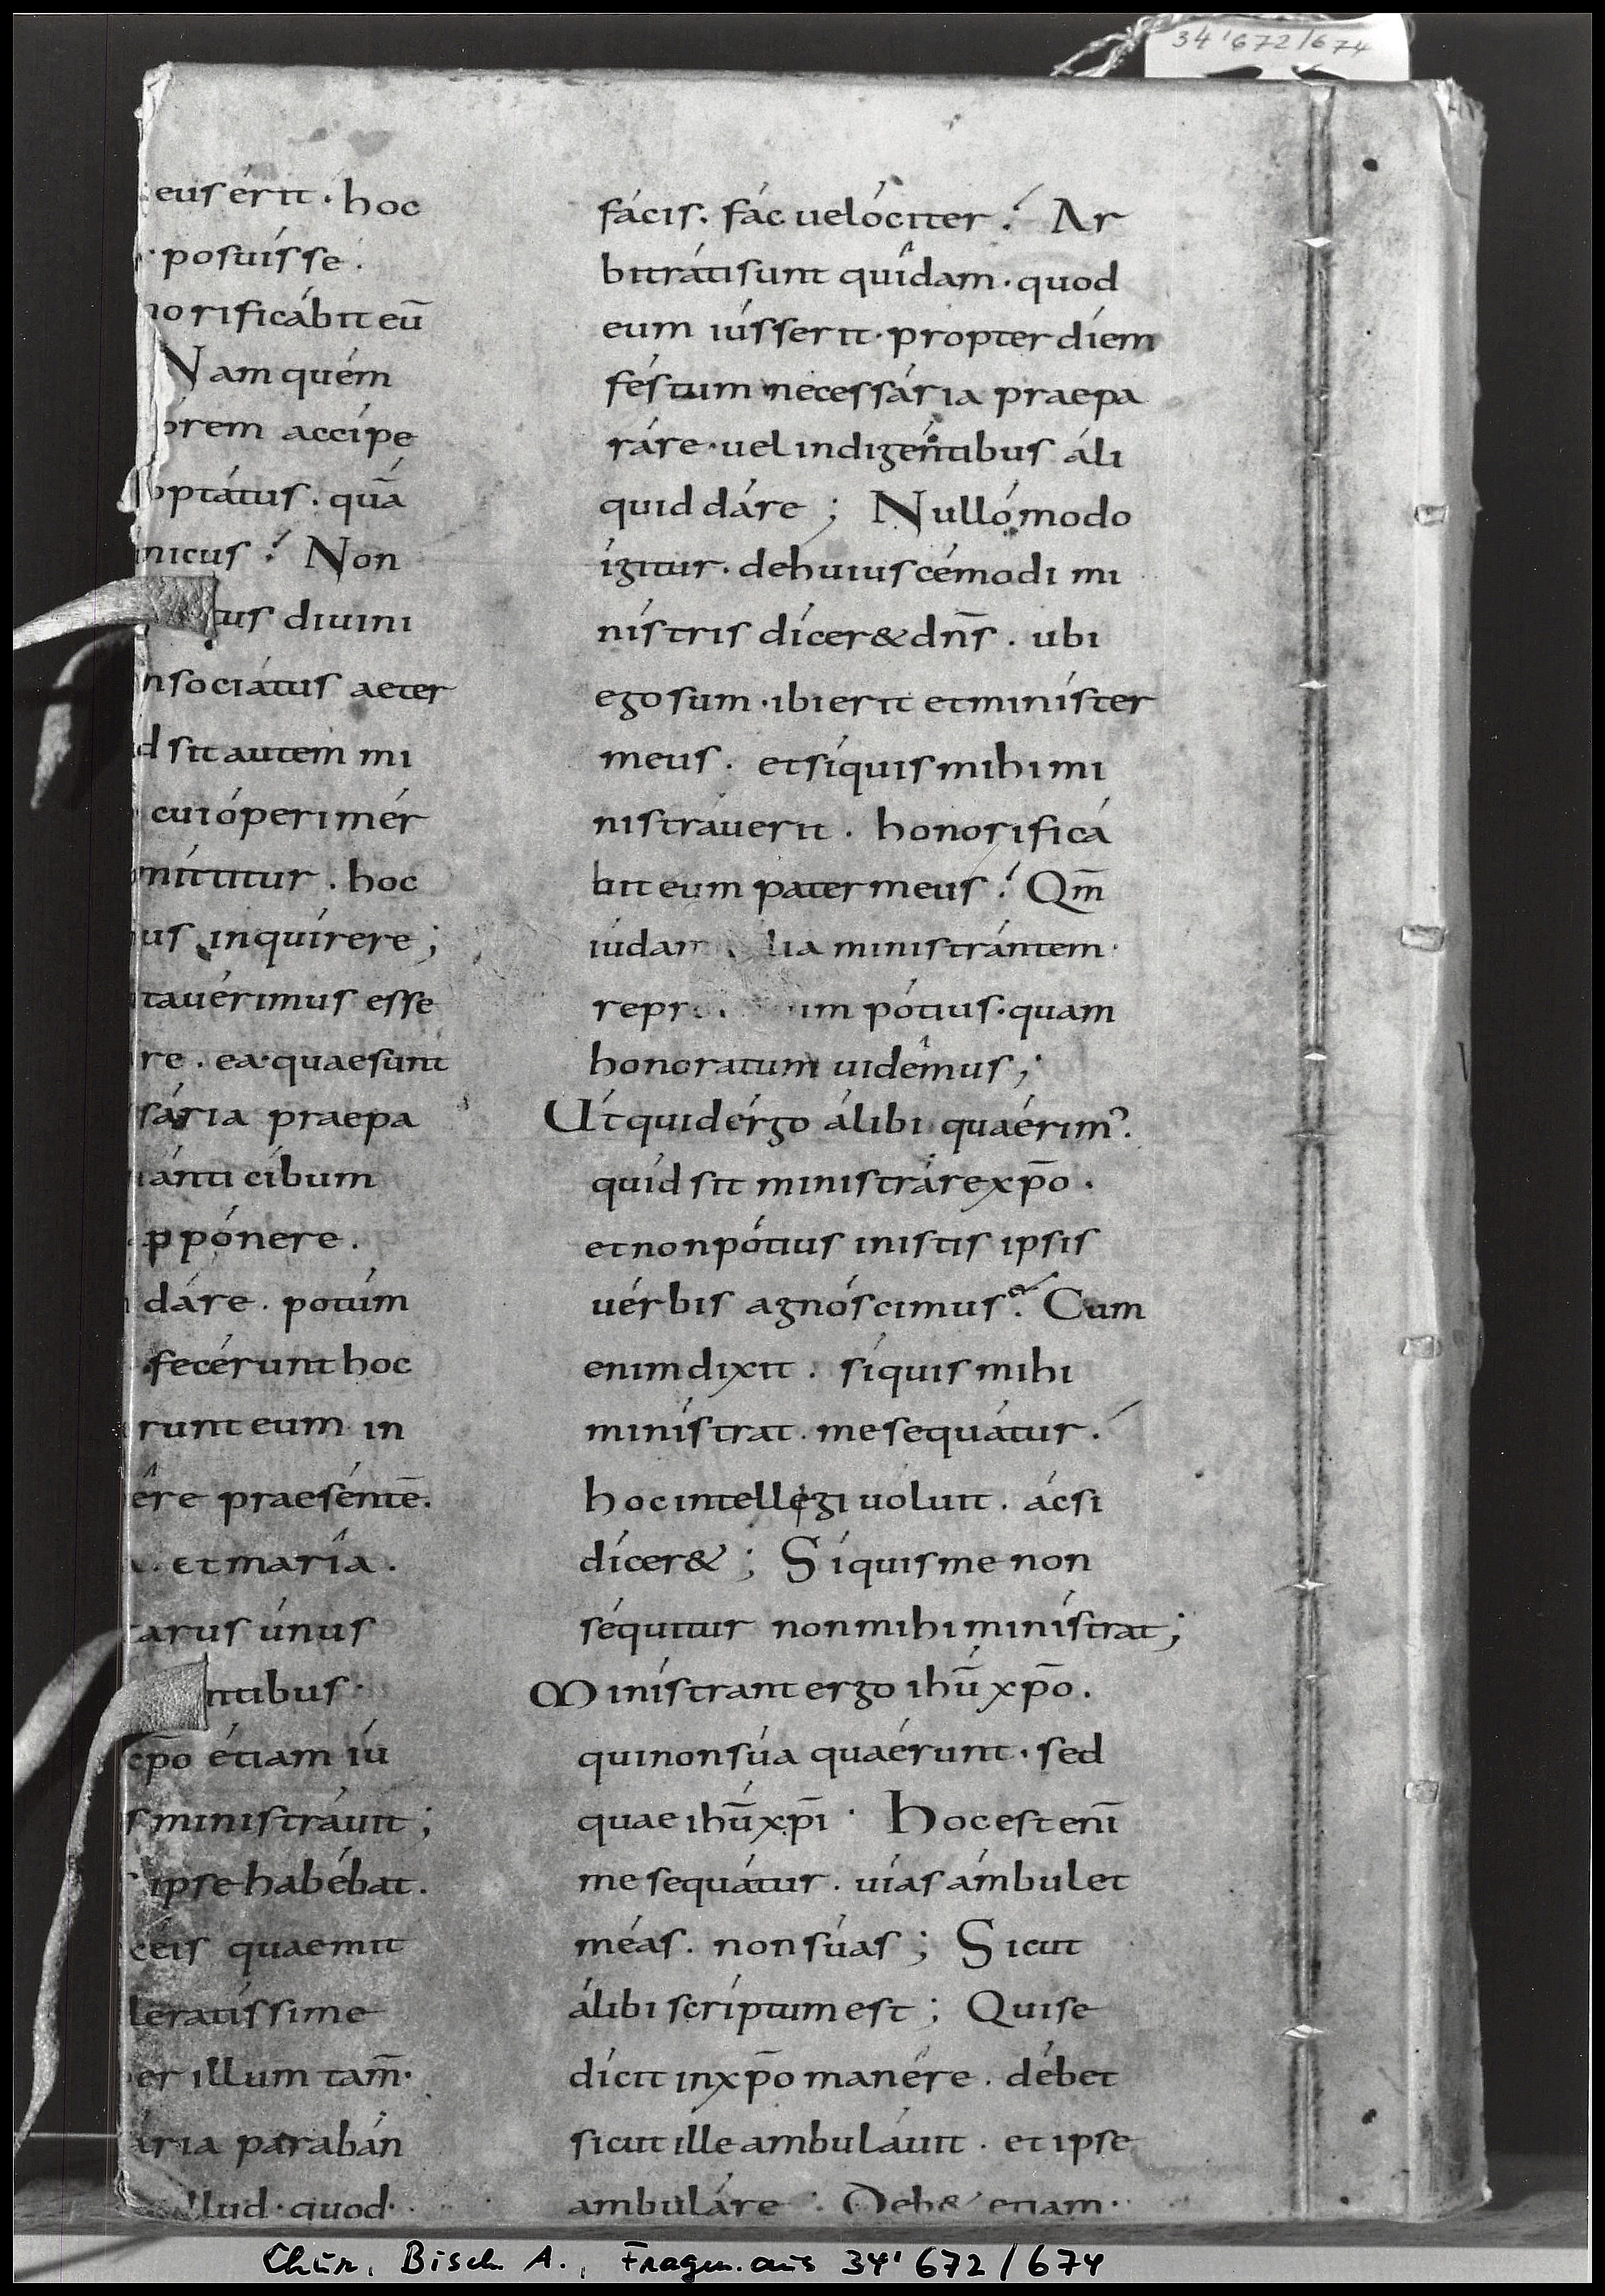 34'672/674
eus érit · hoc
· posuísse ·
norificábit eū
Nam quém
orem accípe
optátus · quā́
nicus ? Non
tus diuini
nsociátus aeter
d sit autem mi
cui óperi mér
mittitur · hoc
us inquírere ;
tauérimus esse
re · ea · quae sunt
sária praepa
ánti cíbum
ppónere ·
dáre · potúm
fecérunt hoc
runt eum in
êre praeséntē ·
· et maría ·
arus únus
ntibus ·
xp̄o étiam iú
s ministráuit ;
ipse habébat ·
céis quae mit
leratíssime
er illum tam̄ ·
ária parabán
llud · quod ·
fácis · fác uelóciter ? Ar
bitráti sunt quîdam · quod
eum iússerit · propter díem
féstum necessária praepa
ráre · uel indigéntibus áli
quid dáre ; Nullómodo
ígitur · de huiuscémodi mi
nístris dícer& dn̄s · ubi
ego sum · ibi erit et miníster
meus · et síquis mihi mi
nistráuerit · honorificá
bit eum pater meus ? Qm̄
iúdam lia ministrántem ·
repr um pótius · quam
honoratum uidêmus ;
Út quid érgo álibi quaérim᾽ ·
quid sit ministráre xp̄o ·
et non pótius in istis ipsis
uérbis agnóscimus ? Cum
enim dixit · síquis mihi
minístrat · me sequátur ·
hoc intellegi uoluit · ácsi
dícer& ; Síquis me non
séquitur non mihi minístrat ;
Minístrant ergo ihū xp̄o ·
qui non súa quaérunt · sed
quae ihū xp̄i · Hoc est enī
me sequátur · uías ámbulet
méas · non súas ; Sicut
álibi scríptum est ; Qui se
dícit in xp̄o manêre · débet
sicut ille ambuláuit · et ipse
ambuláre · Deb& etiam ·
Chur, Bisch. A., Fragm. aus 34'672/674